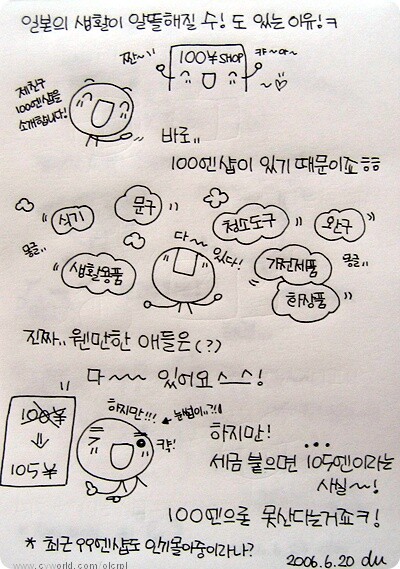 일본의 생활이 알뜰해질 수! 도 있는 이유!ㅋ
짠~
100¥ SHOP
캬~아~
제친구
100엔샵을
소개합니다!
바로..
100엔샵이 있기 때문이죠ㅎㅎ
식기
문구
청소도구
완구
뭉클
생활용품
다~ 있다!
가전제품
뭉클
화장품
진짜.. 웬만한 애들은(?)
다~~~ 있어요ㅅㅅ!
100¥
⇓
105¥
하지만!!!
눈썹이..?!!
캭!
하지만!
...
세금 붙으면 105엔이라는
사실~!
100엔으로 못산다는거죠ㅋ!
* 최근 99엔샵도 인기몰이중이라나?
2006.6.20 du
www.cyworld.com/olcrpl